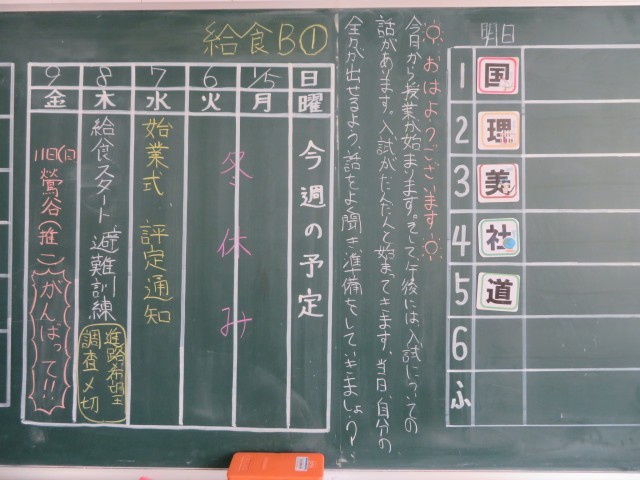 明日
1 国
2 理
3 美
4 社
5 道
6
ふ
おはようございます
今日から授業が始まります。そして午後には入試についての
話があります。入試がだんだんと始まってきます。当日、自分の
全力が出せるよう、話をよく聞き、準備をしていきましょう。
給食B①
今週の予定
日 曜
1/5 月
6 火
冬休み
7 水
始業式、評定通知
8 木
給食スタート 避難訓練
進路希望
調査〆切
9 金
11日(日)鶯谷(推)
がんばって!!